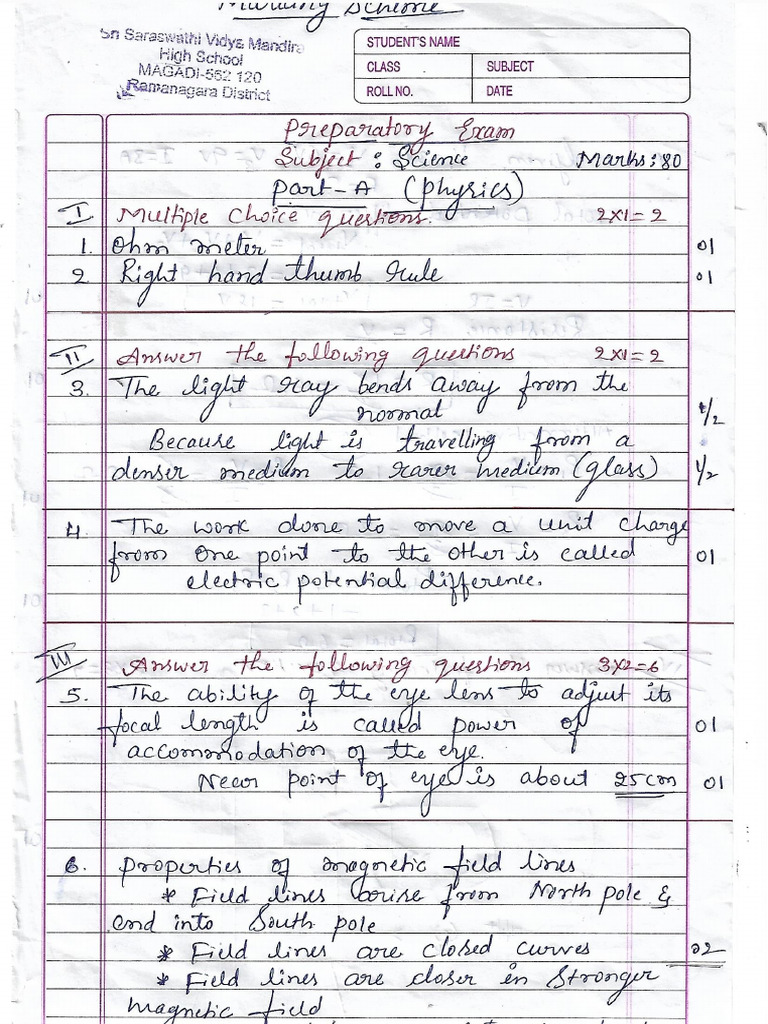 Marking Scheme
Sri Saraswathi Vidya Mandira
High School
MAGADI-562 120
Ramanagara District
STUDENT'S NAME
CLASS SUBJECT
ROLL NO. DATE
Preparatory Exam
Subject : Science Marks: 80
Part-A (Physics)
I Multiple Choice questions. 2x1=2
1. Ohm meter 01
2 Right hand thumb rule 01
II Answer the following questions 2x1=2
3. The light ray bends away from the
normal 1/2
Because light is travelling from a
denser medium to rarer medium (glass) 1/2
4. The work done to move a unit charge
from one point to the other is called 01
electric potential difference.
III Answer the following questions 3x2=6
5. The ability of the eye lens to adjust its
focal length is called power of 01
accommodation of the eye.
Near point of eye is about 25cm 01
6. Properties of magnetic field lines
* Field lines arise from North pole &
end into South pole
* Field lines are closed curves 02
* Field lines are closer in stronger
magnetic field